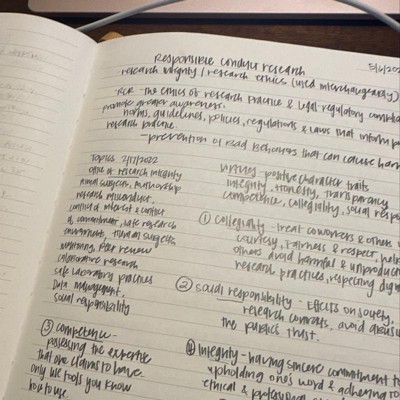 Responsible conduct research
5/6/202
research integrity / research ethics (used interchangeably)
RCR - The ethics of research practice & legal regulatory
promote greater awareness.
norms, guidelines, policies, regulations & laws that inform
research
- prevention of bad behaviors that can cause harm
Topics 2/17/2022
office of research integrity
animal subjects, authorship
research misconduct,
conflicts of interest &
commitment, safe research
environment, human subjects
mentoring, Peer review
collaborative research
safe laboratory practices
Data management,
social responsibility
virtues - positive character traits
integrity, honesty, transparency
competence, collegiality, social
① collegiality - treat coworkers & others
courtesy, fairness & respect,
others avoid harmful &
research practices, respecting
② social responsibility - Effects on society,
research contexts, avoid
the publics trust.
③ competence -
possessing the expertise
that one claims to have.
only use tools you know
how to use.
④ Integrity - having sincere commitment to
upholding ones word & adhering to
ethical &